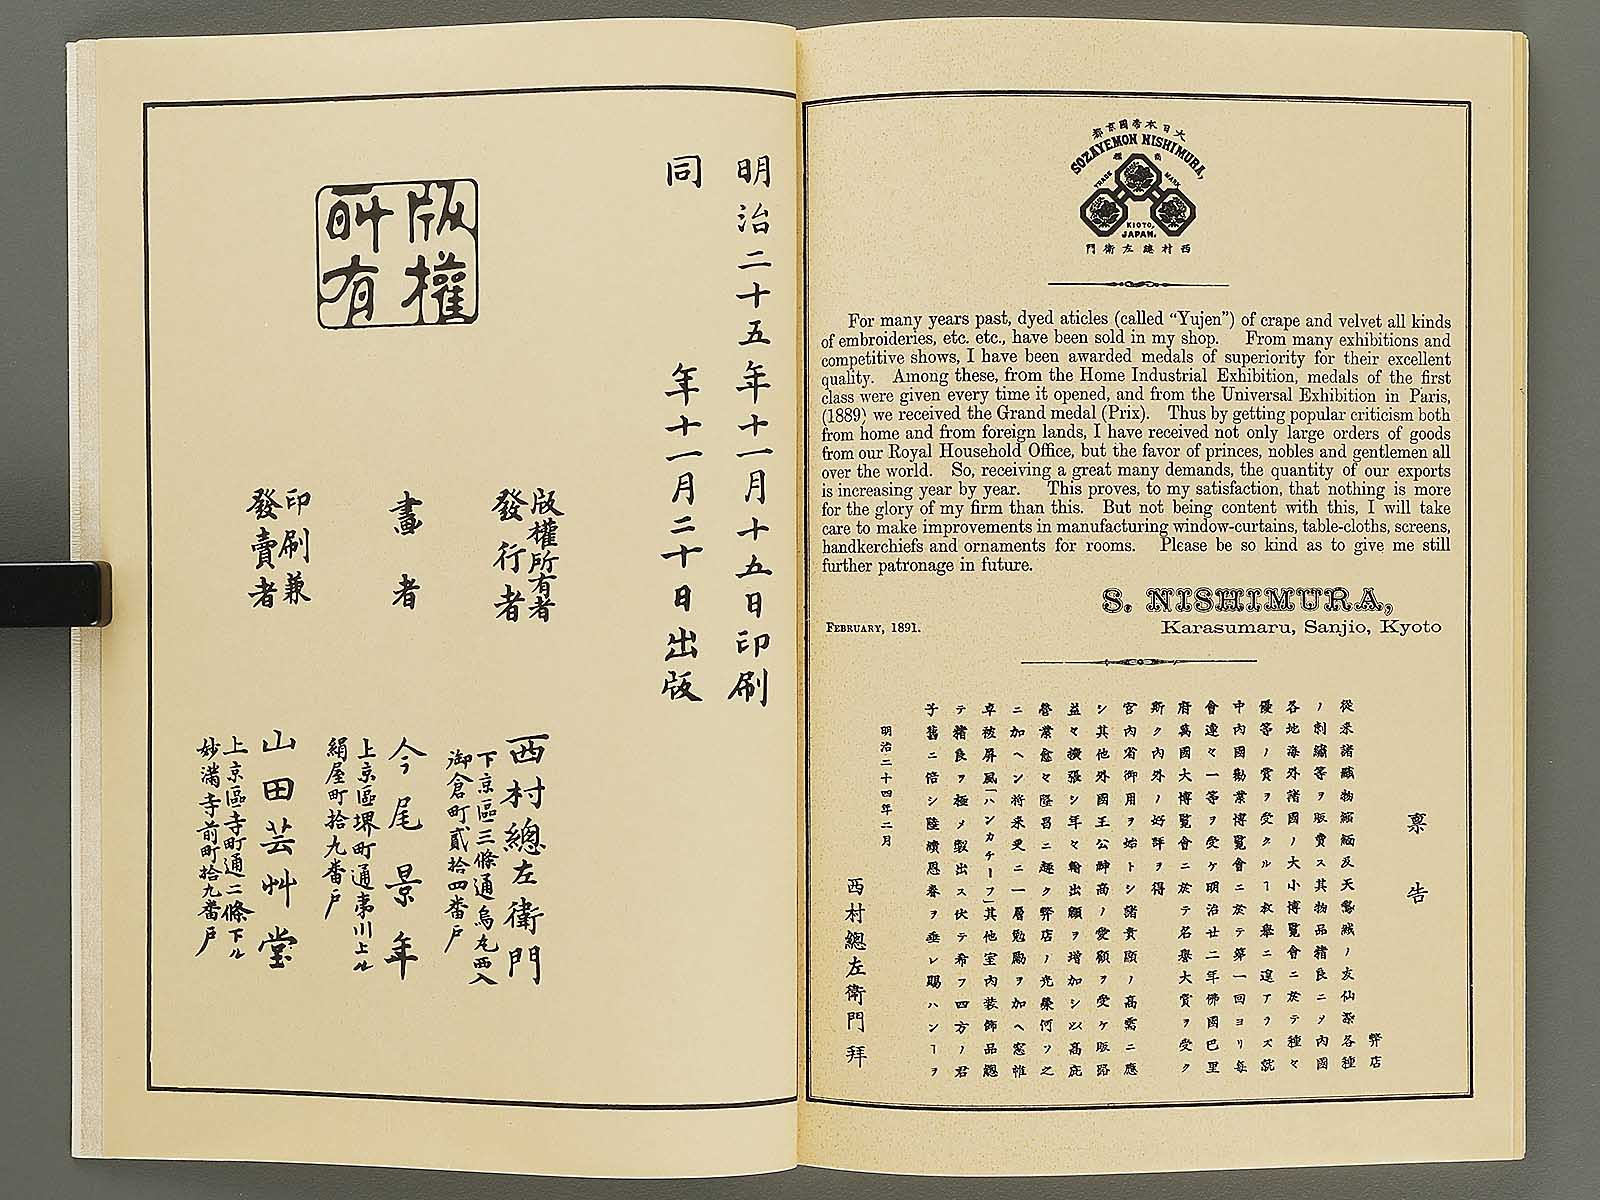 大日本帝國京都
SOZAYEMON NISHIMURA,
商標
TRADE MARK
KIOTO,
JAPAN.
西村總左衛門
For many years past, dyed aticles (called “Yujen”) of crape and velvet all kinds
of embroideries, etc. etc., have been sold in my shop. From many exhibitions and
competitive shows, I have been awarded medals of superiority for their excellent
quality. Among these, from the Home Industrial Exhibition, medals of the first
class were given every time it opened, and from the Universal Exhibition in Paris,
(1889) we received the Grand medal (Prix). Thus by getting popular criticism both
from home and from foreign lands, I have received not only large orders of goods
from our Royal Household Office, but the favor of princes, nobles and gentlemen all
over the world. So, receiving a great many demands, the quantity of our exports
is increasing year by year. This proves, to my satisfaction, that nothing is more
for the glory of my firm than this. But not being content with this, I will take
care to make improvements in manufacturing window-curtains, table-cloths, screens,
handkerchiefs and ornaments for rooms. Please be so kind as to give me still
further patronage in future.
S. NISHIMURA,
FEBRUARY, 1891.
Karasumaru, Sanjio, Kyoto
禀告
弊店
從来諸織物縮緬及天鵞絨ノ友仙染各種
ノ刺繍等ヲ販賣ス其物品精良ニメ内國
各地海外諸國ノ大小博覧會ニ於テ種々
優等ノ賞ヲ受クルヿ枚擧ニ遑アラズ就
中内國勸業博覧會ニ於テ第一回ヨリ毎
會連々一等ヲ受ケ明治廿二年佛國巴里
府萬國大博覧會ニ於テ名譽大賞ヲ受ク
斯ク内外ノ好評ヲ得
宮内省御用ヲ始トシ諸貴顕ノ高需ニ應
シ其他外國王公紳商ノ愛顧ヲ受ケ販路
益々擴張シ年々輸出額ヲ増加シ以高庇
營業愈々隆昌ニ趣ク弊店ノ光榮何ソ之
ニ加ヘン将来更ニ一層勉勵ヲ加ヘ窓帷
卓被屏風「ハンカチーフ」其他室内装飾品總
テ精良ヲ極メ製出ス伏テ希フ四方ノ君
子舊ニ倍シ陸續恩眷ヲ垂レ賜ハンヿヲ
明治二十四年二月
西村總左衛門拜
明治二十五年十一月十五日印刷
同年十一月二十日出版
版權
所有
版權所有者
發行者
西村總左衛門
下京區三條通烏丸西入
御倉町貳拾四番戸
畫者
今尾景年
上京區堺町通夷川上ル
絹屋町拾九番戸
印刷兼
發賣者
山田芸艸堂
上京區寺町通二條下ル
妙滿寺前町拾九番戸